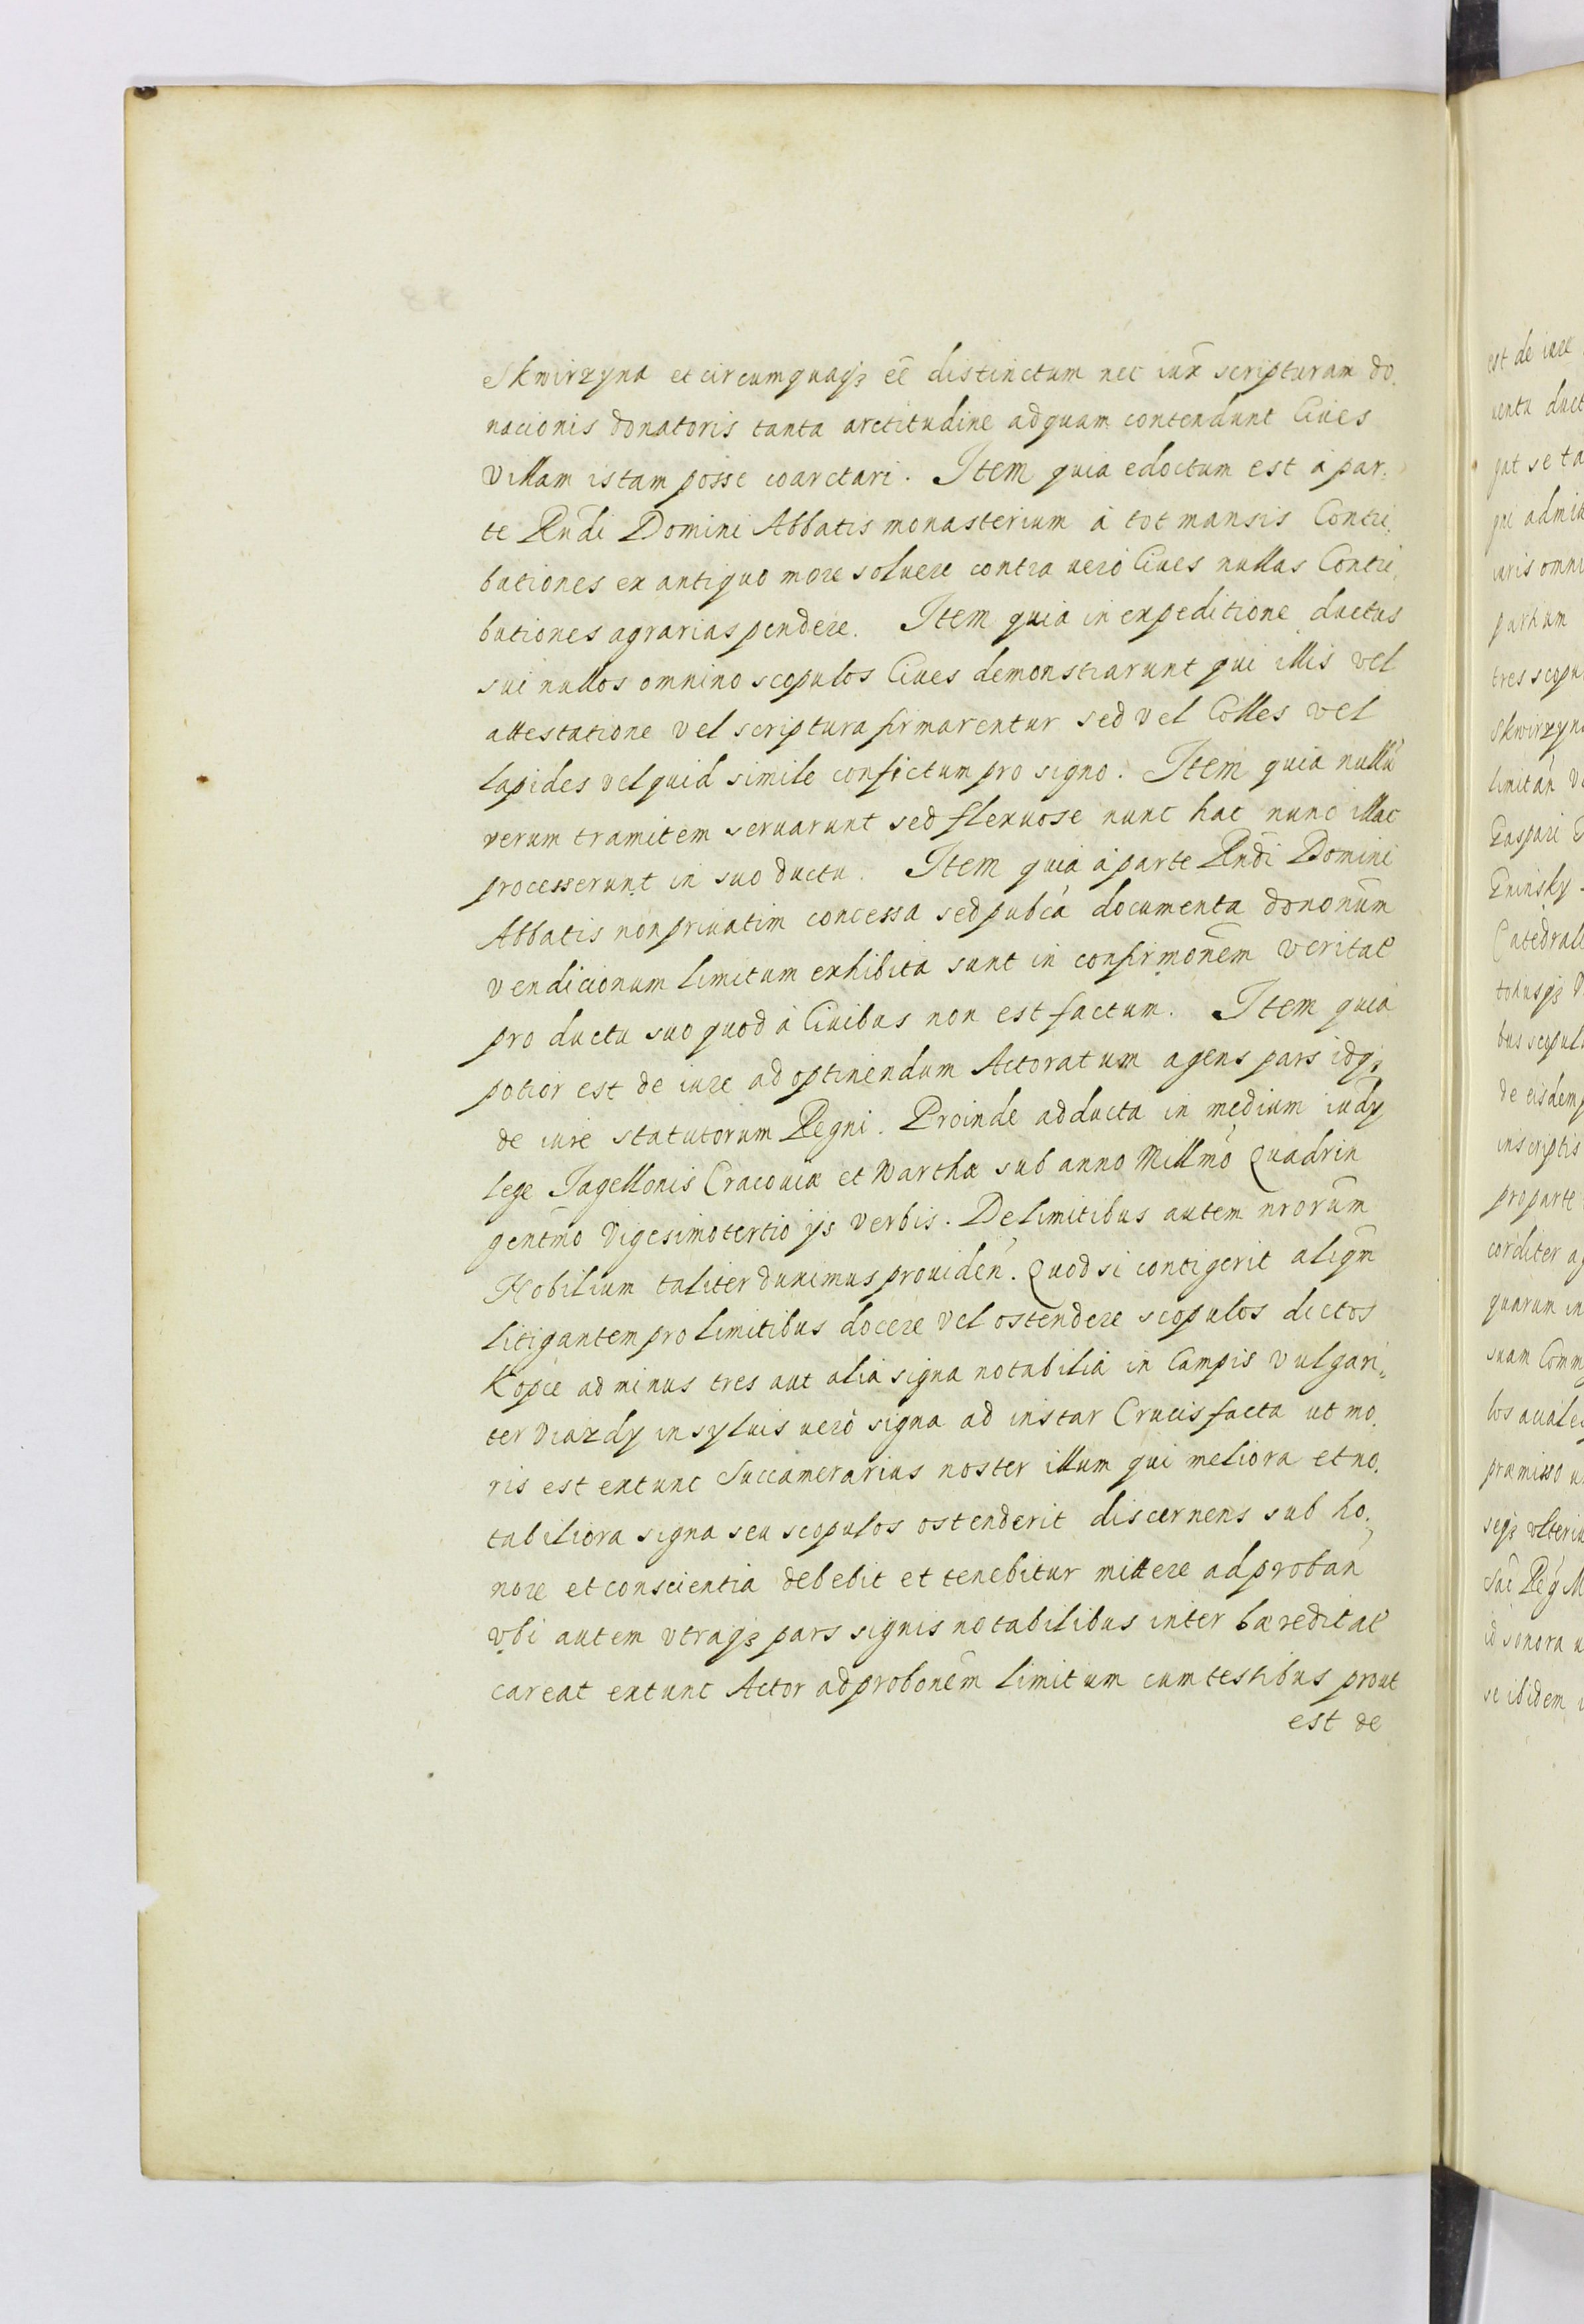 Skwirzyna et circumquaqȝ eē distinctum nec iux̄ scripturam do,
nacionis donatoris tanta arctitudine ad quam contendunt Ciues
villam istam posse coarctari. Item quia edoctum est à par,
te Rn̄di Domini Abbatis monasterium à tot mansis Contri,
butiones ex antiquo more soluere contra uerò Ciues nullas Contri,
butiones agrarias pendere. Item quia in expeditione ductus
sui nullos omnino scopulos Ciues demonstrarunt qui illis vel
attestatione vel scriptura firmarentur sed vel Colles vel
lapides vel quid simile confictum pro signo. Item quia nullū
verum tramitem seruarunt sed flexuose nunc hac nunc illac
processerunt in suo ductu. Item quia à parte Rn̄di Domini
Abbatis non priuatim concessa sed pubca documenta dononūm
vendicionum limitum exhibita sunt in confirmonēm veritat
pro ductu suo quod à Ciuibus non est factum. Item quia
potior est de iure ad optinendum Actoratum agens pars idqȝ
de iure statutorum Regni. Proinde adducta in medium iudy
lege Jagellonis Cracouiæ et Warthæ sub anno Millmō Quadrin
gentmō Vigesimotertio ijs verbis. De limitibus autem nrorūm
Nobilium taliter duximus prouiden̄. Quod si contigerit aliqm̄
litigantem pro limitibus docere vel ostendere scopulos dictos
Kopce ad minus tres aut alia signa notabilia in Campis vulgari,
ter Viazdy in syluis uerò signa ad instar Crucis facta ut mo,
ris est extunc Succamerarius noster illum qui meliora et no,
tabiliora signa seu scopulos ostenderit discernens sub ho,
nore et conscientia debebit et tenebitur mittere ad proban̄
vbi autem vtraqȝ pars signis notabilibus inter hæreditat
careat extunc Actor ad probonēm limitum cum testibus prout
est de